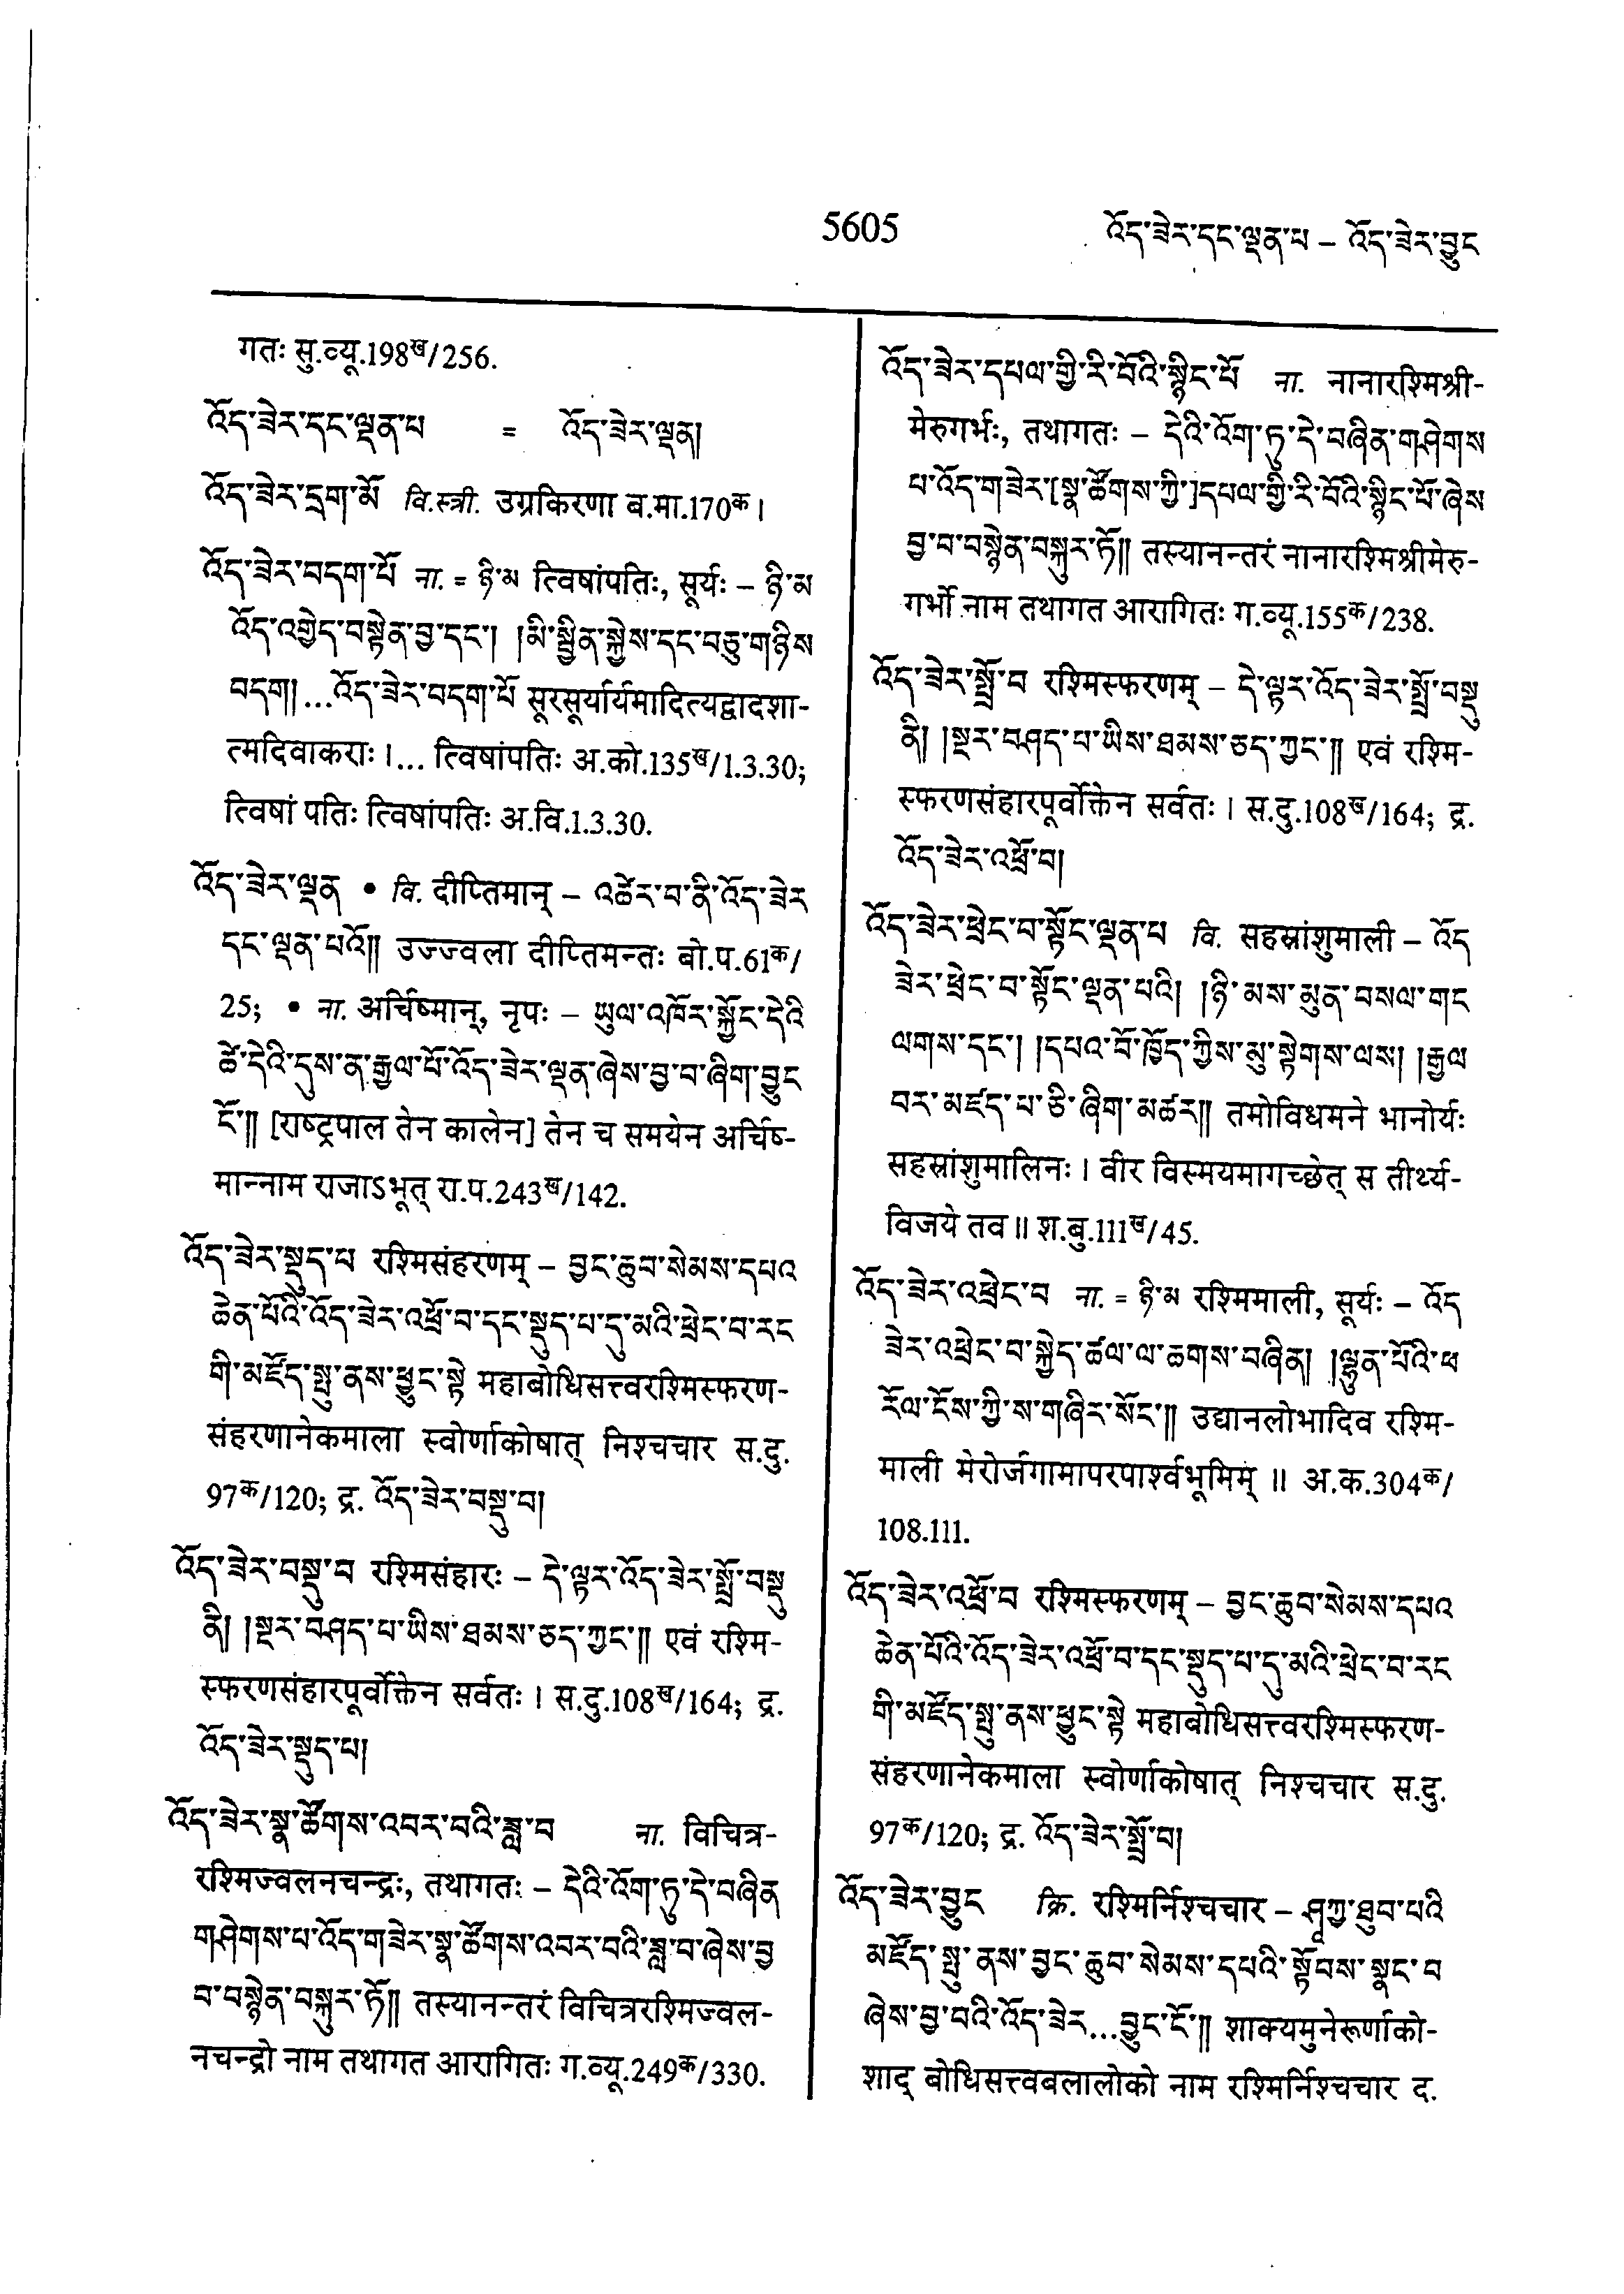 5605
འོད་ཟེར་དང་ལྡན་པ – འོད་ཟེར་བྱུང
गतः सु.व्यू.198ख/256.
འོད་ཟེར་དང་ལྡན་པ = འོད་ཟེར་ལྡན།
འོད་ཟེར་དྲག་མོ वि.स्त्री. उग्रकिरणा ब.मा.170क।
འོད་ཟེར་བདག་པོ ना. = ཉི་མ त्विषांपतिः, सूर्यः – ཉི་མ
འོད་འགྱེད་བསྟེན་བྱ་དང་། །མི་སྦྱིན་སྐྱེས་དང་བཅུ་གཉིས
བདག། ...འོད་ཟེར་བདག་པོ सूरसूर्यार्यमादित्यद्वादशा-
त्मदिवाकराः।... त्विषांपतिः अ.को.135ख/1.3.30;
त्विषां पतिः त्विषांपतिः अ.वि.1.3.30.
འོད་ཟེར་ལྡན • वि. दीप्तिमान् – འཚེར་བ་ནི་འོད་ཟེར
དང་ལྡན་པའོ།། उज्ज्वला दीप्तिमन्तः बो.प.61क/
25; • ना. अर्चिष्मान्, नृपः – ཡུལ་འཁོར་སྐྱོང་དེའི
ཚེ་དེའི་དུས་ན་རྒྱལ་པོ་འོད་ཟེར་ལྡན་ཞེས་བྱ་བ་ཞིག་བྱུང
ངོ་།། [राष्ट्रपाल तेन कालेन] तेन च समयेन अर्चिष-
मान्नाम राजाऽभूत् रा.प.243ख/142.
འོད་ཟེར་སྡུད་པ रश्मिसंहरणम् – བྱང་ཆུབ་སེམས་དཔའ
ཆེན་པོའི་འོད་ཟེར་འཕྲོ་བ་དང་སྡུད་པ་དུ་མའི་ཕྲེང་བ་རང
གི་མཛོད་སྤུ་ནས་ཕྱུང་སྟེ महाबोधिसत्त्वरश्मिस्फरण-
संहरणानेकमाला स्वोर्णाकोषात् निश्चचार स.दु.
97क/120; द्र. འོད་ཟེར་བསྡུ་བ།
འོད་ཟེར་བསྡུ་བ रश्मिसंहारः – དེ་ལྟར་འོད་ཟེར་སྤྲོ་བསྡུ
ནི། །སྔར་བཤད་པ་ཡིས་ཐམས་ཅད་ཀྱང་།། एवं रश्मि-
स्फरणसंहारपूर्वोक्तेन सर्वतः। स.दु.108ख/164; द्र.
འོད་ཟེར་སྡུད་པ།
འོད་ཟེར་སྣ་ཚོགས་འབར་བའི་ཟླ་བ ना. विचित्र-
रश्मिज्वलनचन्द्रः, तथागतः – དེའི་འོག་ཏུ་དེ་བཞིན
གཤེགས་པ་འོད་གཟེར་སྣ་ཚོགས་འབར་བའི་ཟླ་བ་ཞེས་བྱ
བ་བསྙེན་བསྐུར་ཏོ།། तस्यानन्तरं विचित्ररश्मिज्वल-
नचन्द्रो नाम तथागत आरागितः ग.व्यू.249क/330.
འོད་ཟེར་དཔལ་གྱི་རི་བོའི་སྙིང་པོ ना. नानारश्मिश्री-
मेरुगर्भः, तथागतः – དེའི་འོག་ཏུ་དེ་བཞིན་གཤེགས
པ་འོད་གཟེར་[སྣ་ཚོགས་ཀྱི་]དཔལ་གྱི་རི་བོའི་སྙིང་པོ་ཞེས
བྱ་བ་བསྙེན་བསྐུར་ཏོ།། तस्यानन्तरं नानारश्मिश्रीमेरु-
गर्भो नाम तथागत आरागितः ग.व्यू.155क/238.
འོད་ཟེར་སྤྲོ་བ रश्मिस्फरणम् – དེ་ལྟར་འོད་ཟེར་སྤྲོ་བསྡུ
ནི། །སྔར་བཤད་པ་ཡིས་ཐམས་ཅད་ཀྱང་།། एवं रश्मि-
स्फरणसंहारपूर्वोक्तेन सर्वतः। स.दु.108ख/164; द्र.
འོད་ཟེར་འཕྲོ་བ།
འོད་ཟེར་ཕྲེང་བ་སྟོང་ལྡན་པ वि. सहस्रांशुमाली – འོད
ཟེར་ཕྲེང་བ་སྟོང་ལྡན་པའི། །ཉི་མས་མུན་བསལ་གང
ལགས་དང་། །དཔའ་བོ་ཁྱོད་ཀྱིས་མུ་སྟེགས་ལས། །རྒྱལ
བར་མཛད་པ་ཅི་ཞིག་མཚར།། तमोविधमने भानोर्यः
सहस्रांशुमालिनः। वीर विस्मयमागच्छेत् स तीर्थ्य-
विजये तव॥ श.बु.111ख/45.
འོད་ཟེར་འཕྲེང་བ ना. = ཉི་མ रश्मिमाली, सूर्यः – འོད
ཟེར་འཕྲེང་བ་སྐྱེད་ཚལ་ལ་ཆགས་བཞིན། །ལྷུན་པོའི་ཕ
རོལ་ངོས་ཀྱི་ས་གཞིར་སོང་།། उद्यानलोभादिव रश्मि-
माली मेरोर्जगामापरपार्श्वभूमिम्॥ अ.क.304क/
108.111.
འོད་ཟེར་འཕྲོ་བ रश्मिस्फरणम् – བྱང་ཆུབ་སེམས་དཔའ
ཆེན་པོའི་འོད་ཟེར་འཕྲོ་བ་དང་སྡུད་པ་དུ་མའི་ཕྲེང་བ་རང
གི་མཛོད་སྤུ་ནས་ཕྱུང་སྟེ महाबोधिसत्त्वरश्मिस्फरण-
संहरणानेकमाला स्वोर्णाकोषात् निश्चचार स.दु.
97क/120; द्र. འོད་ཟེར་སྤྲོ་བ།
འོད་ཟེར་བྱུང क्रि. रश्मिर्निश्चचार – ཤཱཀྱ་ཐུབ་པའི
མཛོད་སྤུ་ནས་བྱང་ཆུབ་སེམས་དཔའི་སྟོབས་སྣང་བ
ཞེས་བྱ་བའི་འོད་ཟེར...བྱུང་ངོ་།། शाक्यमुनेरूर्णाको-
शाद् बोधिसत्त्वबलालोको नाम रश्मिर्निश्चचार द.